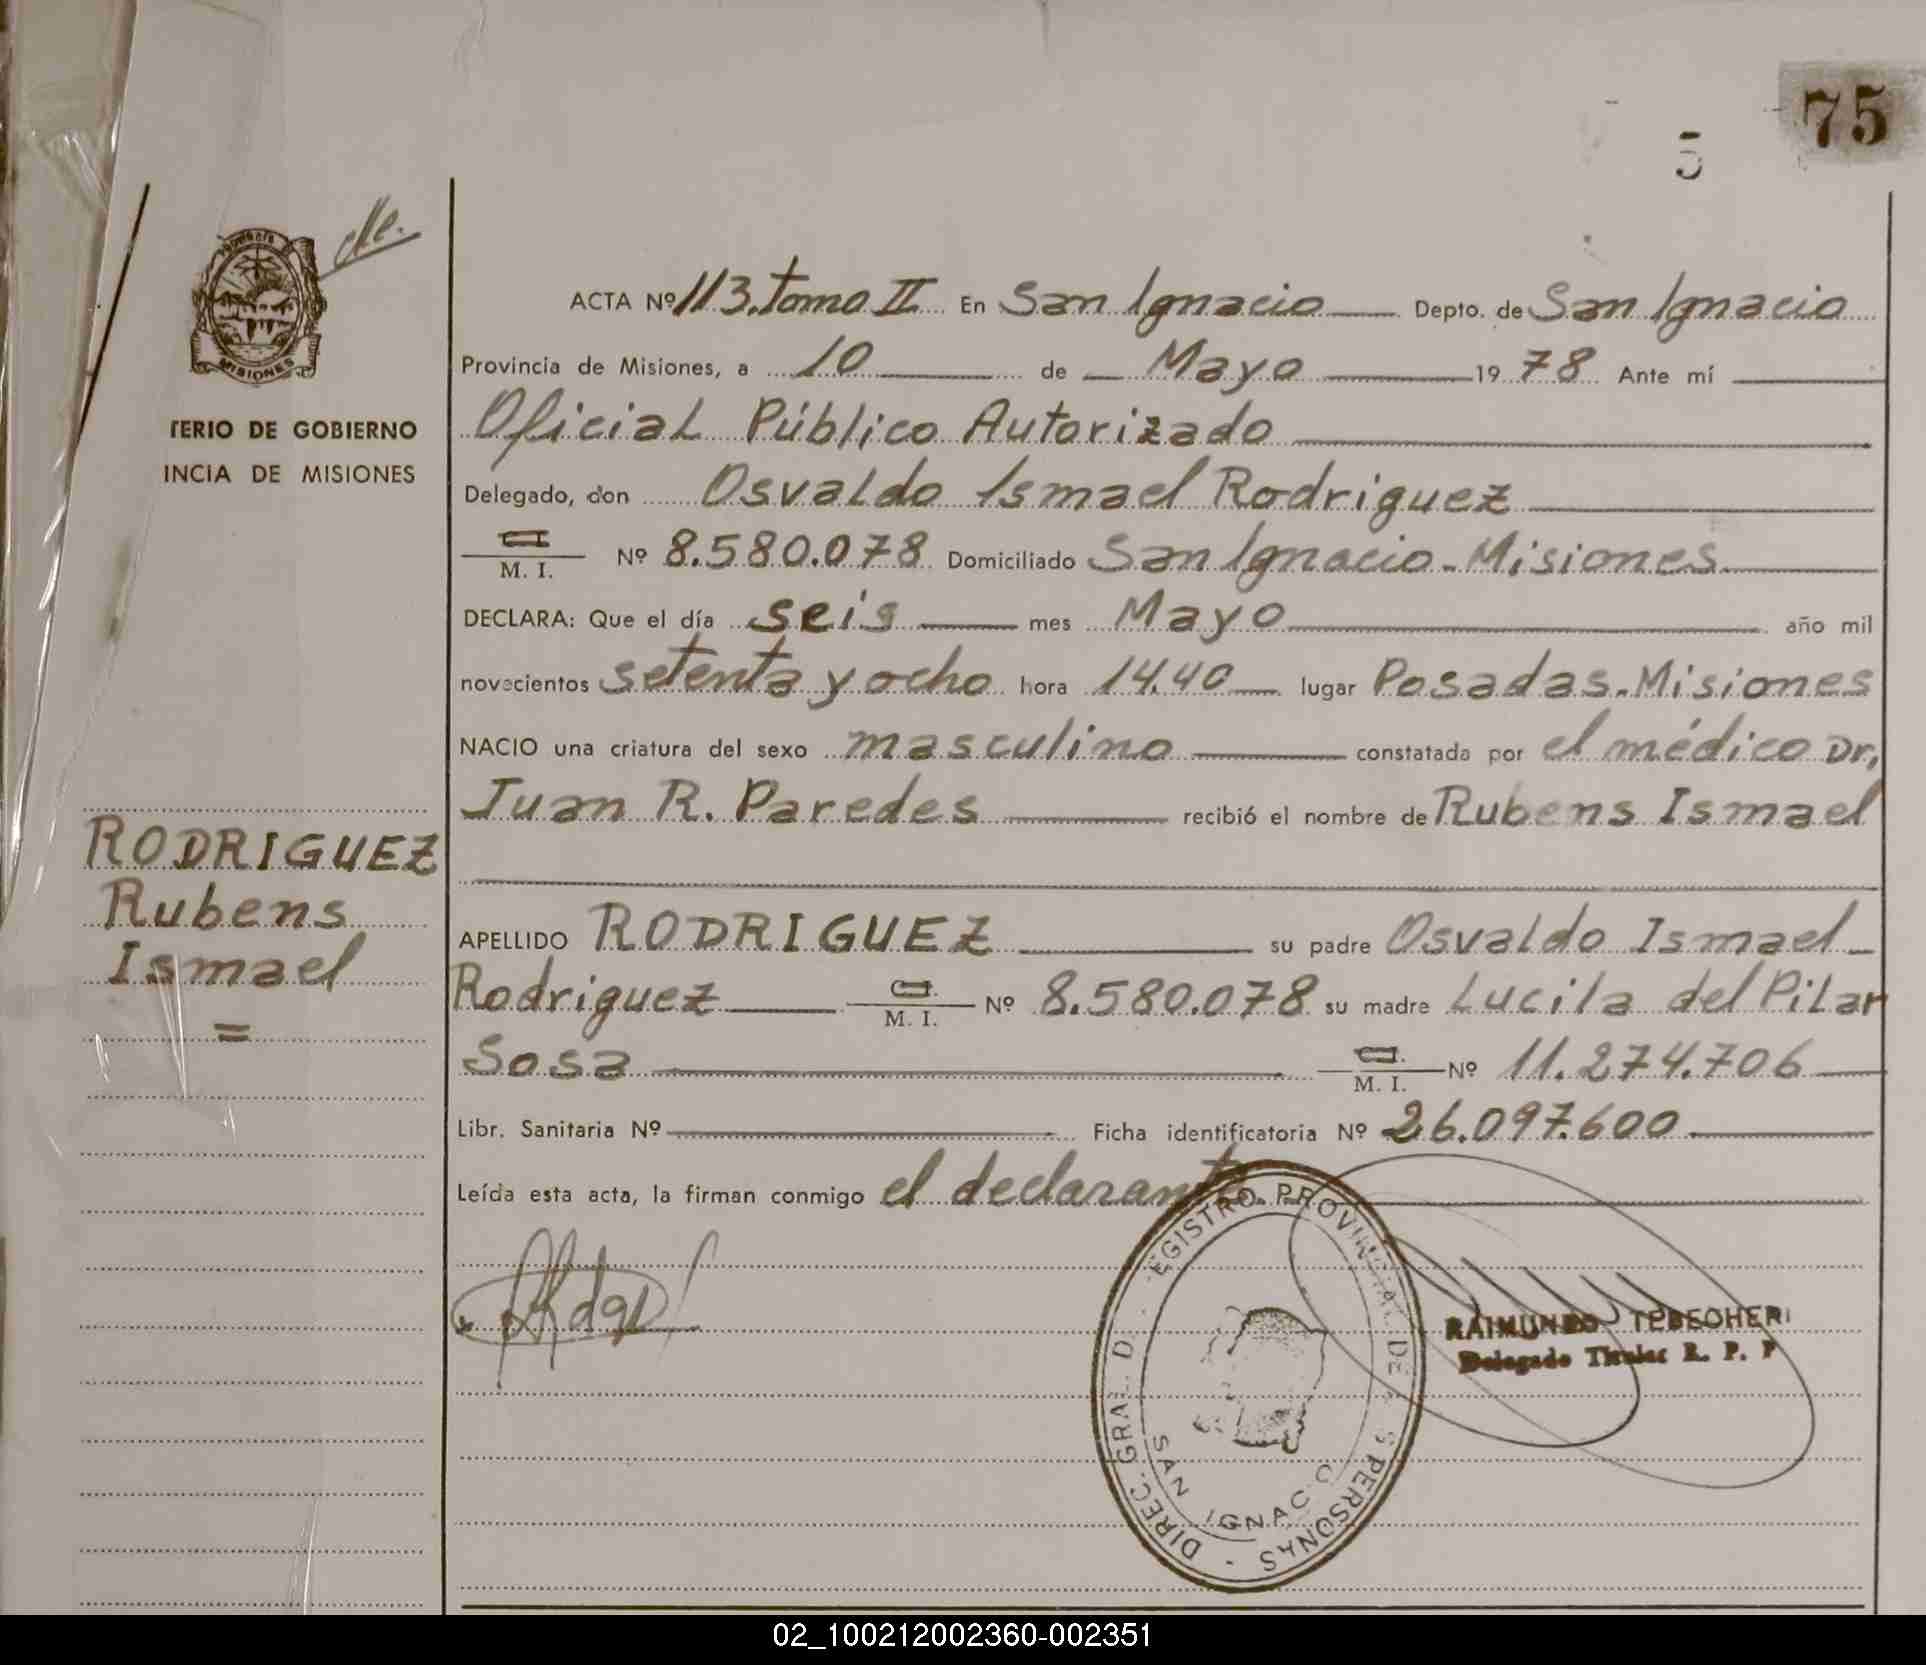 75
5
MISIONES
TERIO DE GOBIERNO
INCIA DE MISIONES
RODRIGUEZ
Rubens
Ismael
=
ACTA Nº 113. tomo II En San Ignacio Depto. de San Ignacio
Provincia de Misiones, a 10 de Mayo 1978 Ante mí
Oficial Público Autorizado
Delegado, don Osvaldo Ismael Rodriguez
M. I. Nº 8.580.078 Domiciliado San Ignacio - Misiones
DECLARA: Que el día seis mes Mayo año mil
novecientos setenta y ocho hora 14.40 lugar Posadas - Misiones
NACIO una criatura del sexo masculino constatada por el médico Dr.
Juan R. Paredes recibió el nombre de Rubens Ismael
APELLIDO RODRIGUEZ su padre Osvaldo Ismael
Rodriguez M. I. Nº 8.580.078 su madre Lucila del Pilar
Sosa M. I. Nº 11.274.706
Libr. Sanitaria Nº Ficha identificatoria Nº 26.097.600
Leída esta acta, la firman conmigo el declarante
DIREC. GRAL. D EGISTRO PROVINCIAL DE S PERSONAS
SAN IGNACIO
RAIMUNDO
Delegado Titular R. P. P
02_100212002360-002351